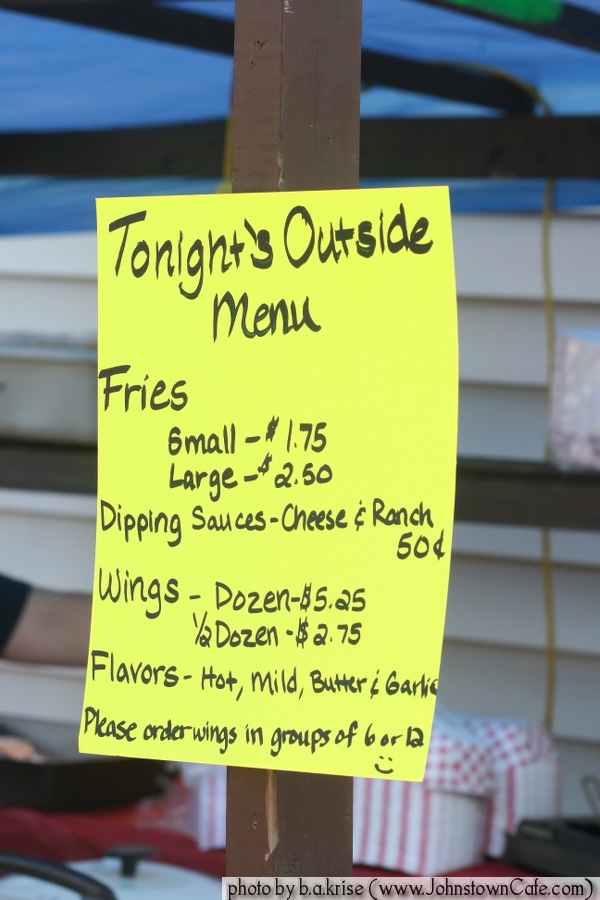 Tonight's Outside
Menu
Fries
Small - $1.75
Large - $2.50
Dipping Sauces - Cheese & Ranch
50¢
Wings - Dozen - $5.25
1/2 Dozen - $2.75
Flavors - Hot, Mild, Butter & Garlic
Please order wings in groups of 6 or 12
photo by b.a.krise (www.JohnstownCafe.com)